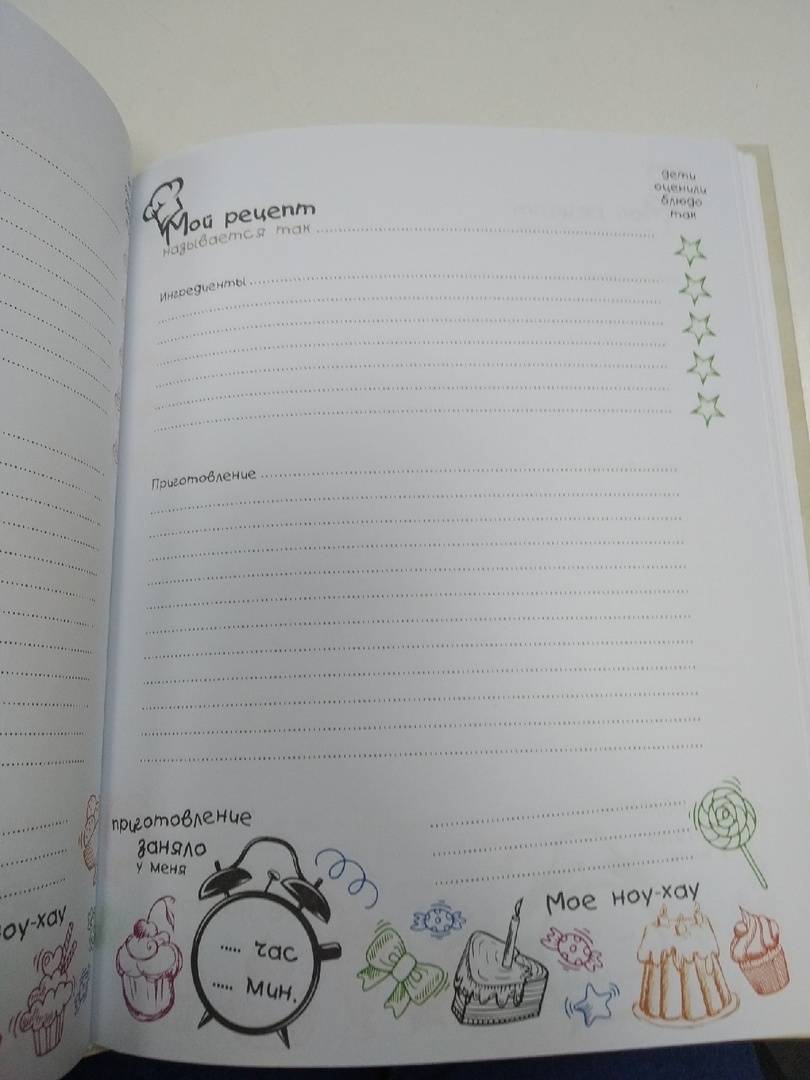 Мой рецепт
называется так
дети
оценили
блюдо
так
Ингредиенты
Приготовление
приготовление
заняло
у меня
час
мин.
Мое ноу-хау
оу-хау